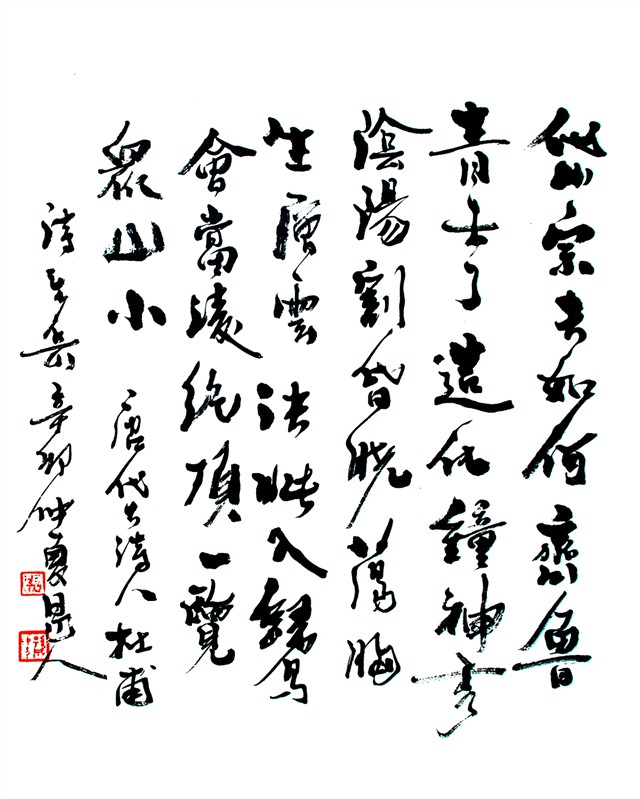 岱宗夫如何齊魯
青未了造化鐘神秀
陰陽割昏曉蕩胸
生層雲決眥入歸鳥
會當凌絕頂一覽
眾山小 唐代大詩人杜甫
詩望岳辛卯仲夏